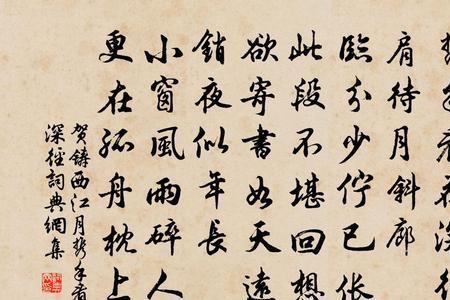 肩待月斜廊
臨分少佇已伥
此段不堪回想
欲寄書如天遠
銷夜似年長
小窗風雨碎人
更在孤舟枕上
賀鑄西江月携手看
深徑詞典網集